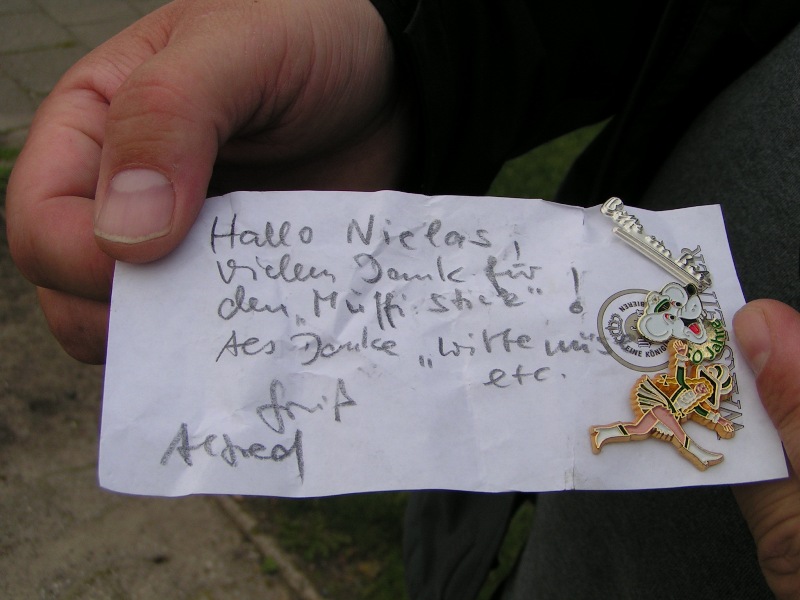 Hallo Niclas,
vielen Dank für
den „Müffi-Stick"!
Als Danke „Witte mi's
etc.
Gruß
Alfred